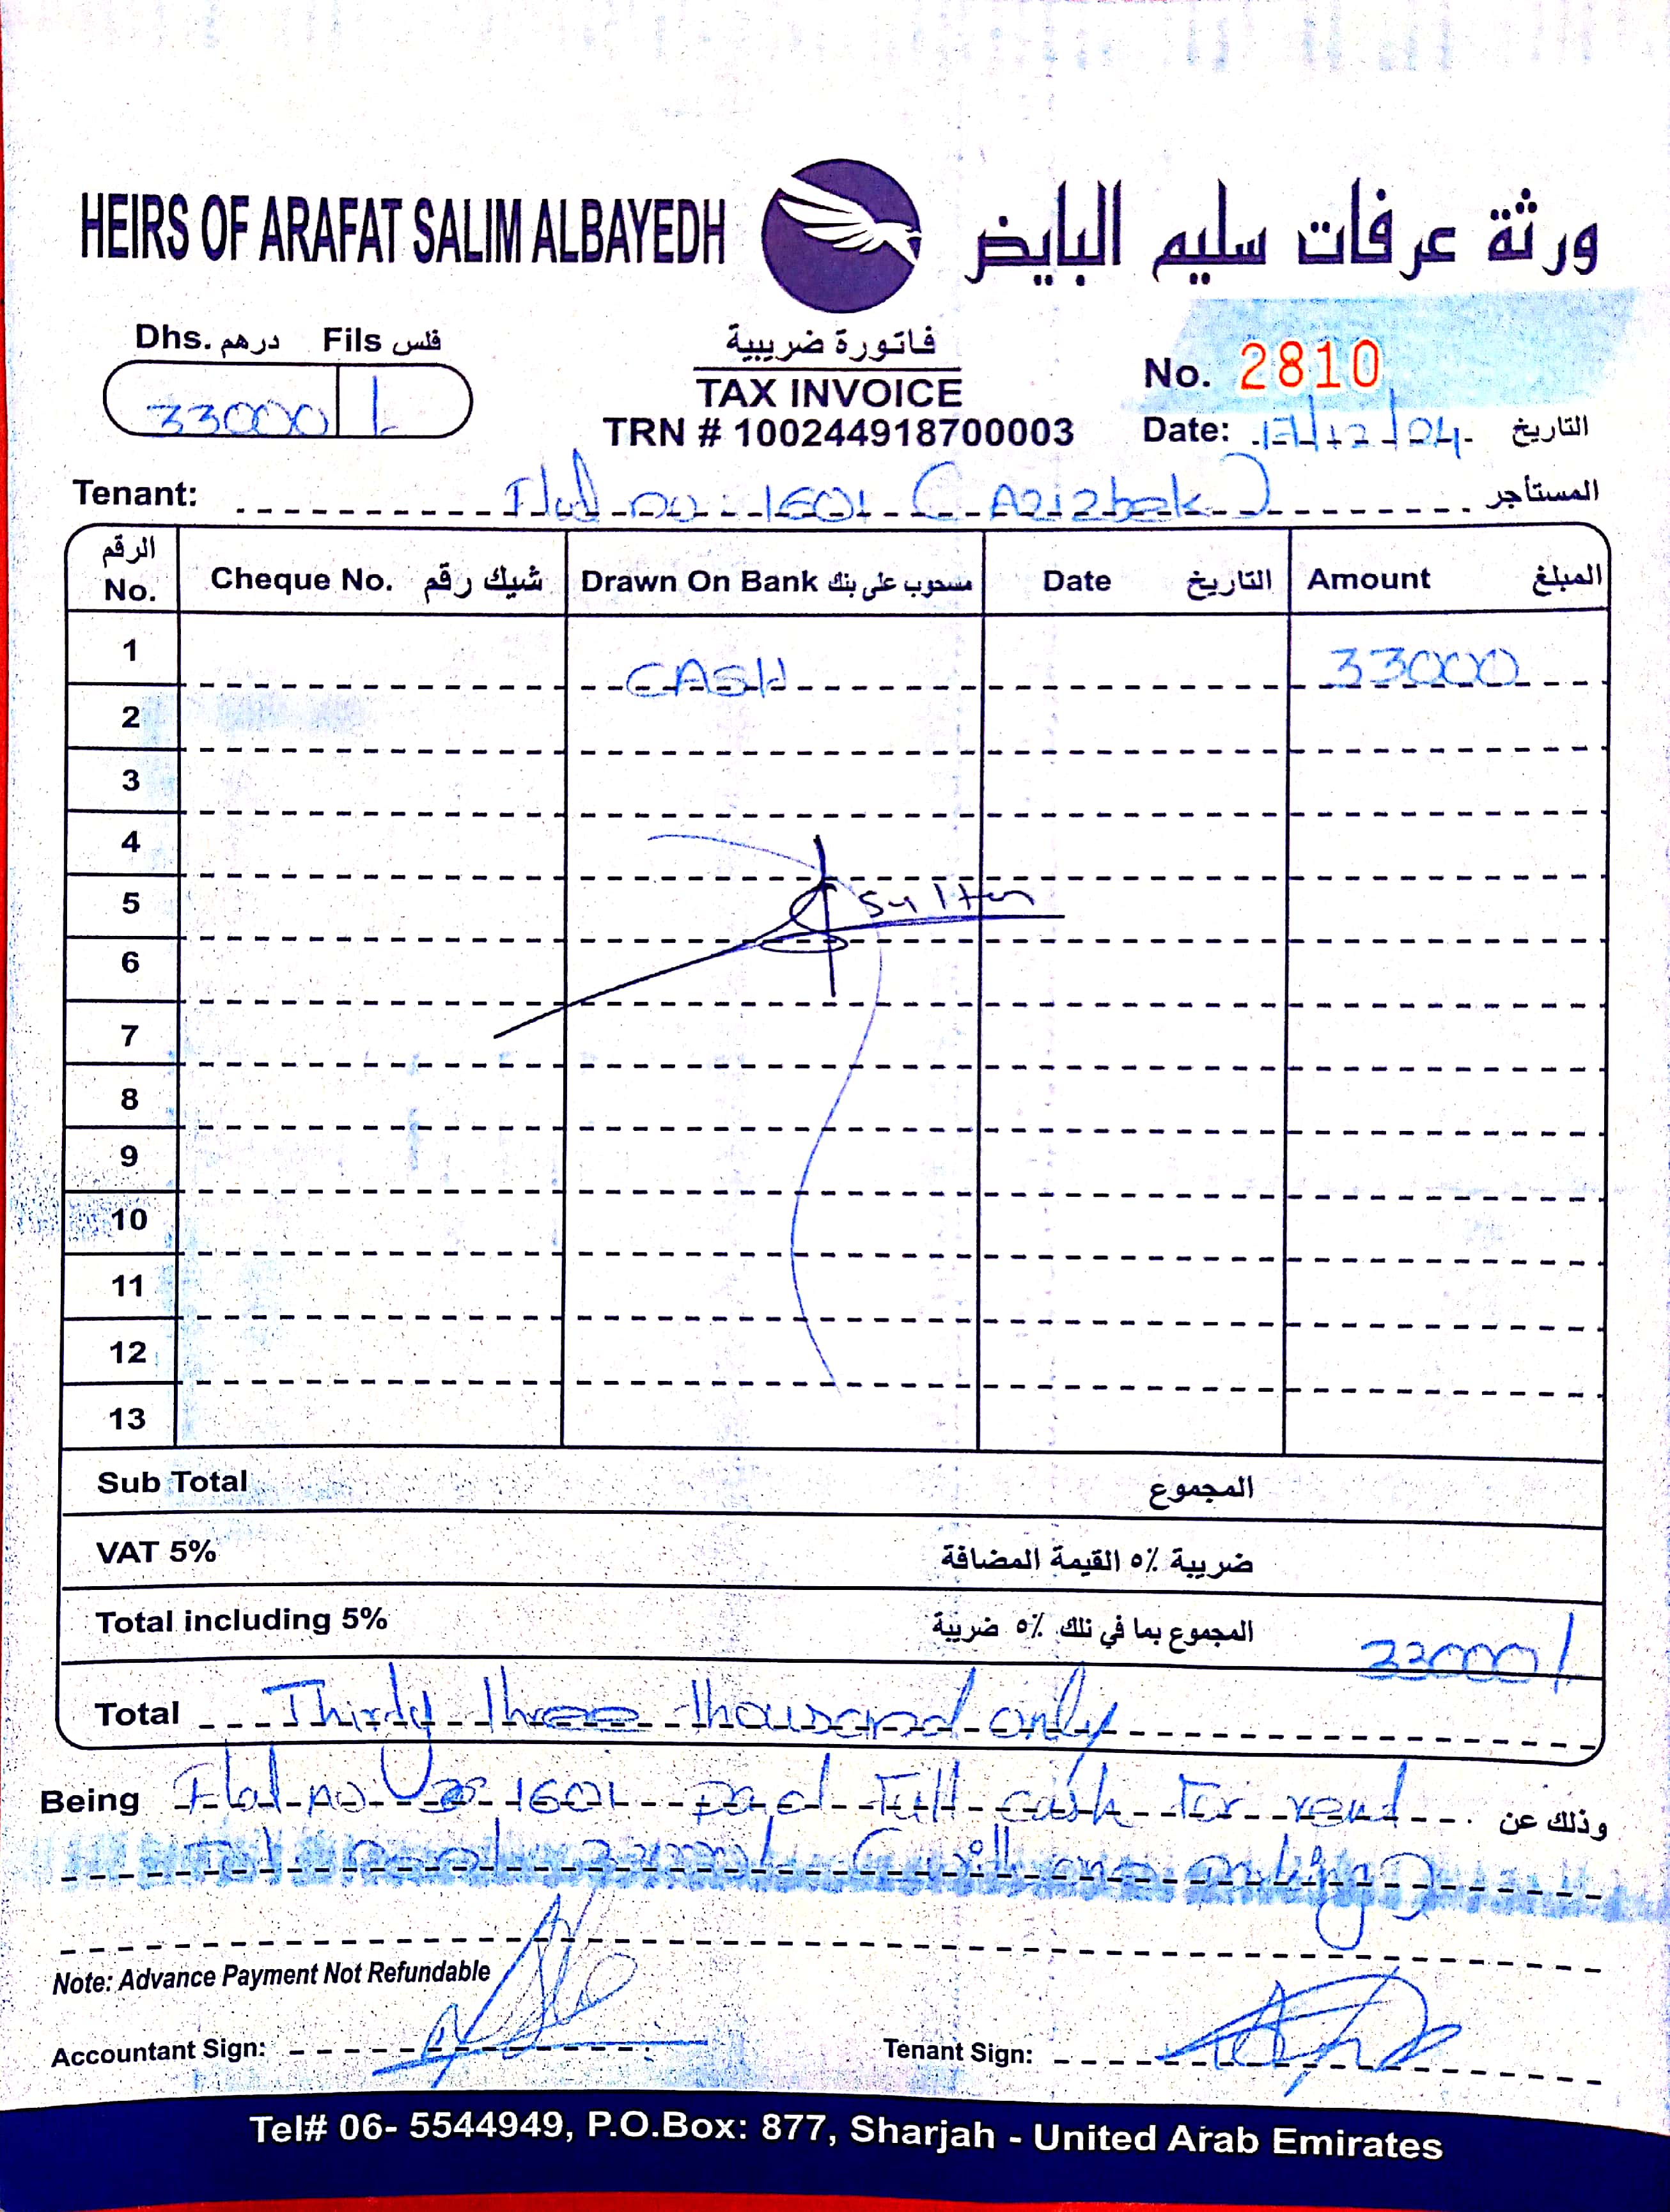 HEIRS OF ARAFAT SALIM ALBAYEDH ورثة عرفات سليم البايض
Dhs. درهم Fils فلس
33000 /-
فاتورة ضريبية
TAX INVOICE
TRN # 100244918700003
No. 2810
Date: 17/12/24 التاريخ
Tenant: Flat no: 1601 (Azizbek) المستأجر
الرقم No. Cheque No. شيك رقم Drawn On Bank مسحوب على بنك Date التاريخ Amount المبلغ
1 CASH 33000
2
3
4
5 Sultan
6
7
8
9
10
11
12
13
Sub Total المجموع
VAT 5% ضريبة ٥٪ القيمة المضافة
Total including 5% المجموع بما في تلك ٥٪ ضريبة 33000/
Total Thirty three thousand only
Being Flat no 1601 paid full cash for rent وذلك عن
33000/ (with one parking)
Note: Advance Payment Not Refundable
Accountant Sign: Tenant Sign:
Tel# 06- 5544949, P.O.Box: 877, Sharjah - United Arab Emirates